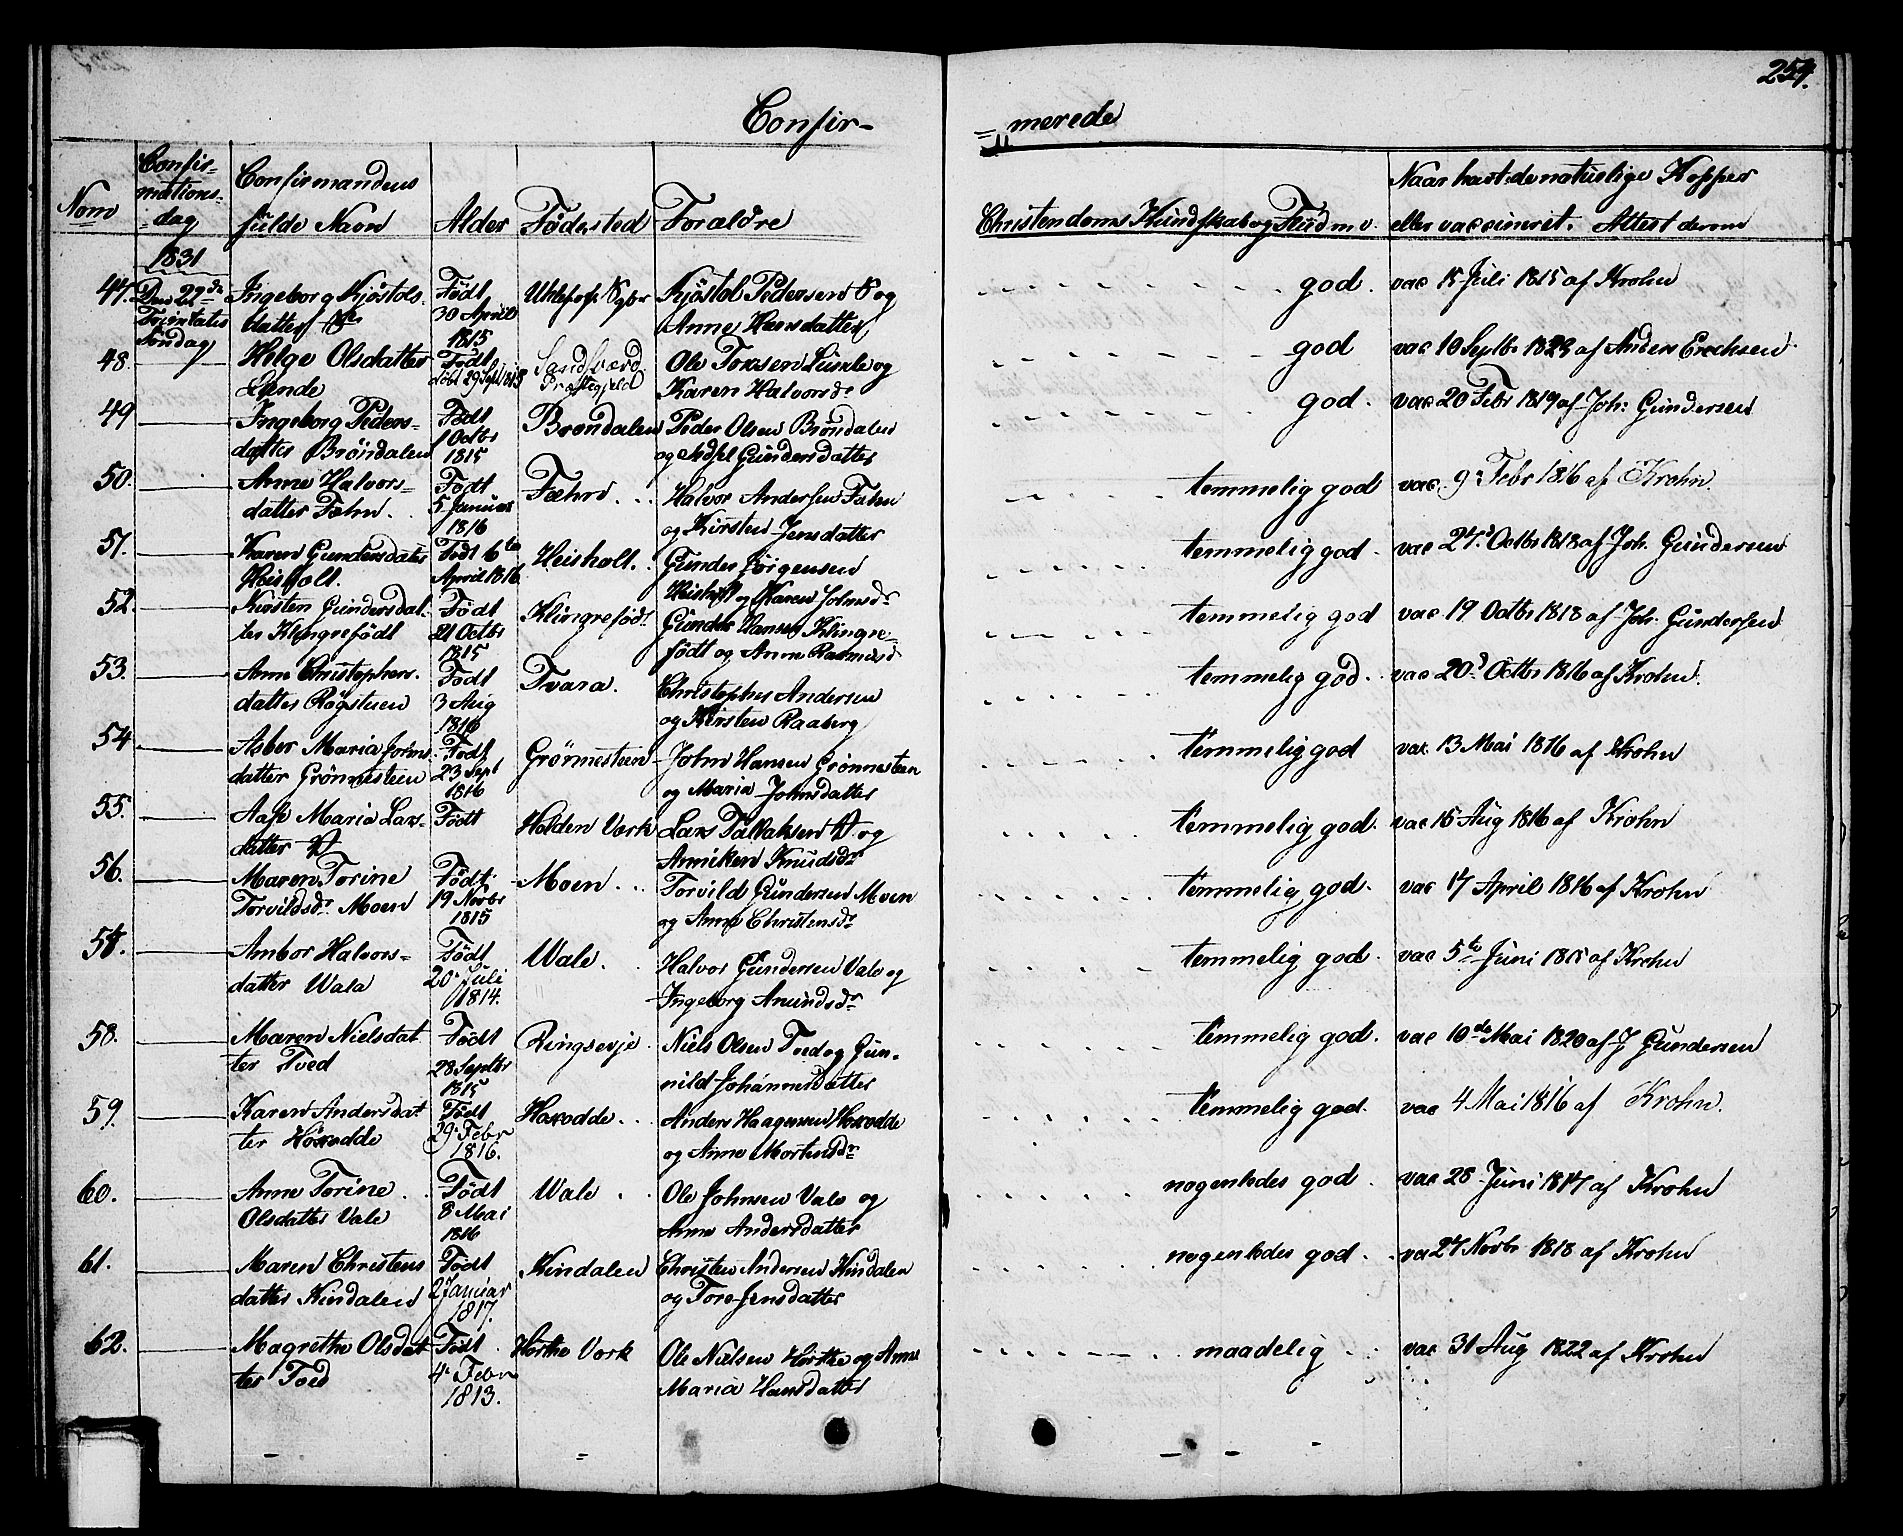 254.
Confir-
=merede
Nom
Confir-
mations-
dag
Confirmandens
fulde Navn
Alder
Fødested
Forældre
Christendoms Kundskab og Flid m.v.
Naar havt de naturlige Kopper
eller vaccineret. Attest derom
1831
Den 22de
Trinitatis
Søndag
47. Ingeborg Kjøstols-
datter
Født
30 April
1815
Kjøstol Pedersen og
Anne Hansdatter
god. vac 15 Juli 1815 af Krohn
48. Helge Olsdatter
Lunde
Født
døbt 29 Sept 1815
Sandsværd
Præstegjeld
Ole Torsen Lunde og
Karen Halvorsdr
god vac 10 Septbr 1823 af Anders Erichsen
49 Ingeborg Peders-
datter Brøndalen
Født
1 Octbr
1815
Brøndalen
Peder Olsen Brøndalen
og Gundersdatter
god. vac 20 Febr 1819 af Joh: Gundersen
50. Anne Halvors-
datter Fæhn.
Født
5 Januar
1816
Fæhn
Halvor Andersen Fæhn
og Kirsten Jensdatter
temmelig god vac. 9 Febr 1816 af Krohn.
51. Karen Gundersdatter
Heisholt.
Født 6te
April 1816
Heisholt.
Gunder Jørgensen
Heisholt og Karen Johnsdr
temmelig god. vac 27. Octbr 1818 af Joh. Gundersen
52. Kirsten Gundersdat-
ter Klingrefødt
Født
21 Octbr
1815
Klingrefødt
Gunder Hansen Klingre-
født og Anne Rasmusd
temmelig god vac 19 Octbr 1818 af Joh. Gundersen
53. Anne Christophers-
datter Røgstuen
Født
3 Aug
1816
Tvara.
Christopher Andersen
og Kirsten Raaberg
temmelig god. vac 20d Octbr 1816 af Krohn.
54 Asber Maria Johns-
datter Grønnesteen
Født
23 Sept
1816
Grønnesteen
John Hansen Grønnesteen
og Maria Johnsdatter
temmelig god vac. 13 Mai 1816 af Krohn
55. Aase Maria Lars-
datter
Født
Holden Værk
Lars Tallaksen og
Anniken Knudsdr
temmelig god. vac 15 Aug 1816 af Krohn
56. Maren Torine
Torvildsdr Moen
Født
19 Novbr
1815
Moen
Torvild Gundersen Moen
og Anne Christensdr
temmelig god. vac 17 April 1816 af Krohn
57. Ambor Halvors-
datter Wala
Født
20. Juli
1814.
Wale.
Halvor Gundersen Vale og
Ingeborg Amundsdr
temmelig god. vac 5te Juni 1815 af Krohn
58. Maren Nielsdat
ter Tved
Født
28 Septbr
1815
Ringsevje
Niels Olsen Tved og Gun-
nild Johannesdatter
temmelig god. vac 10de Mai 1820 af J Gundersen
59. Karen Andersdat
ter Hoxodde
Født
29. Febr
1816.
Hoxodde
Anders Haagensen Hoxodde
og Anne Mortensdr
temmelig god. vac 4 Mai 1816 af Krohn.
60. Anne Torine
Olsdatter Vale
Født
8 Mai
1816
Wale
Ole Johnsen Vale og
Anne Andersdatter
nogenledes god. vac 28 Juni 1817 af Krohn
61. Maren Christens
datter Kindalen
Født
2 Januar
1817.
Kindalen
Christen Andersen Kindalen
og Tore Jensdatter
nogenledes god. vac 27 Novbr 1818 af Krohn
62. Magrethe Olsdat
ter Tved
Født
4. Febr
1813.
Hørthe Værk
Ole Nielsen Hørthe og Anne
Maria Hansdatter
maadelig vac 31 Aug 1822 af Krohn